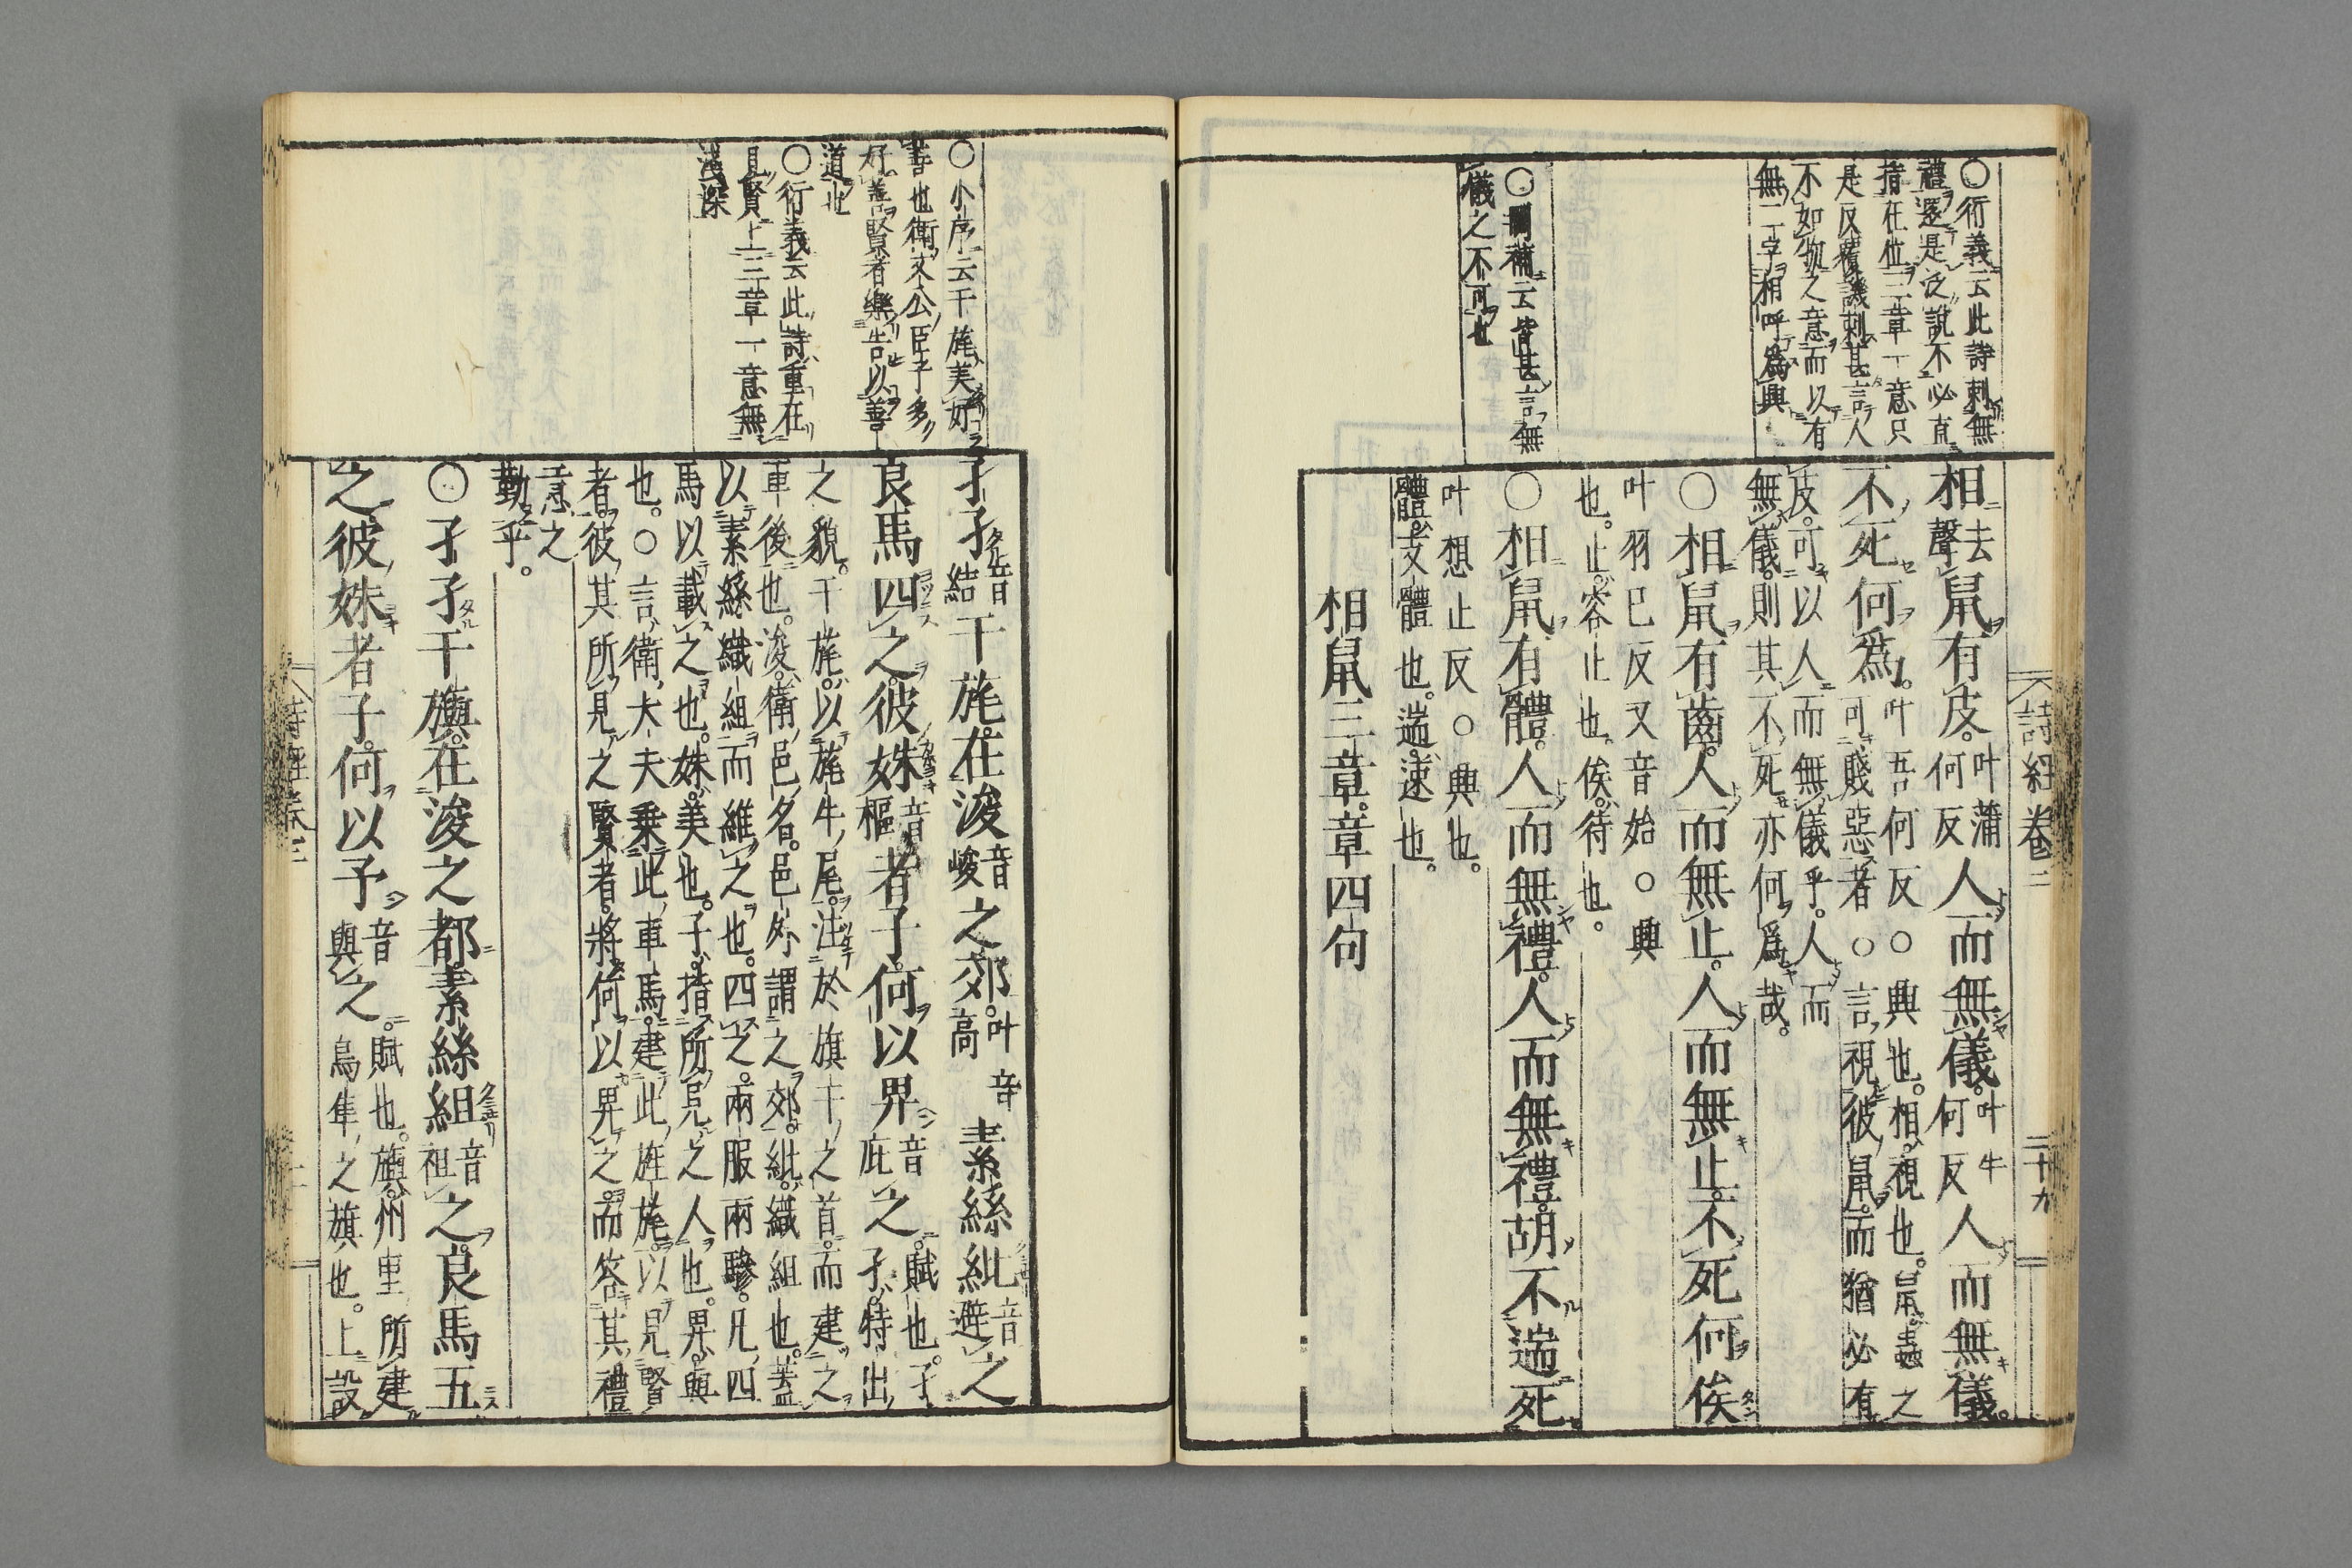 ○衍義云此詩刺無
禮還是泛說不必直
指在位三章一意只
是反覆譏刺甚言人
不如物之意而以有
無二字相呼爲興
○圈補云皆甚言無
儀之不可也
相去聲鼠有皮叶蒲何反人而無儀叶牛何反人而無儀
不死何爲叶吾何反○興也相視也鼠蟲之可賤惡者○言視彼鼠而猶必有
皮可以人而無儀乎人而無儀則其不死亦何爲哉
○相鼠有齒人而無止人而無止不死何俟
叶羽已反又音始○興也止容止也俟待也
○相鼠有體人而無禮人而無禮胡不遄死
叶想止反○興也體支體也遄速也
相鼠三章章四句
詩經卷三
二十九
○小序云干旄美好
善也衛文公臣子多
好善賢者樂告以善
道也
○衍義云此詩重在
見賢上三章一意無
淺深
孑孑音結干旄在浚音峻之郊叶音高素絲紕音避之
良馬四之彼姝音樞者子何以畀音庇之賦也孑孑特出
之貌干旄以旄牛尾注於旗干之首而建之
車後也浚衛邑名邑外謂之郊紕織組也蓋
以素絲織組而維之也四之兩服兩驂凡四
馬以載之也姝美也子指所見之人也畀與
也○言衛大夫乗此車馬建此旌旄以見賢
者彼其所見之賢者將何以畀之而答其禮
意之勤乎
○孑孑干旟在浚之都素絲組音祖之良馬五
之彼姝者子何以予音與之賦也旟州里所建鳥隼之旗也上設
詩經卷三